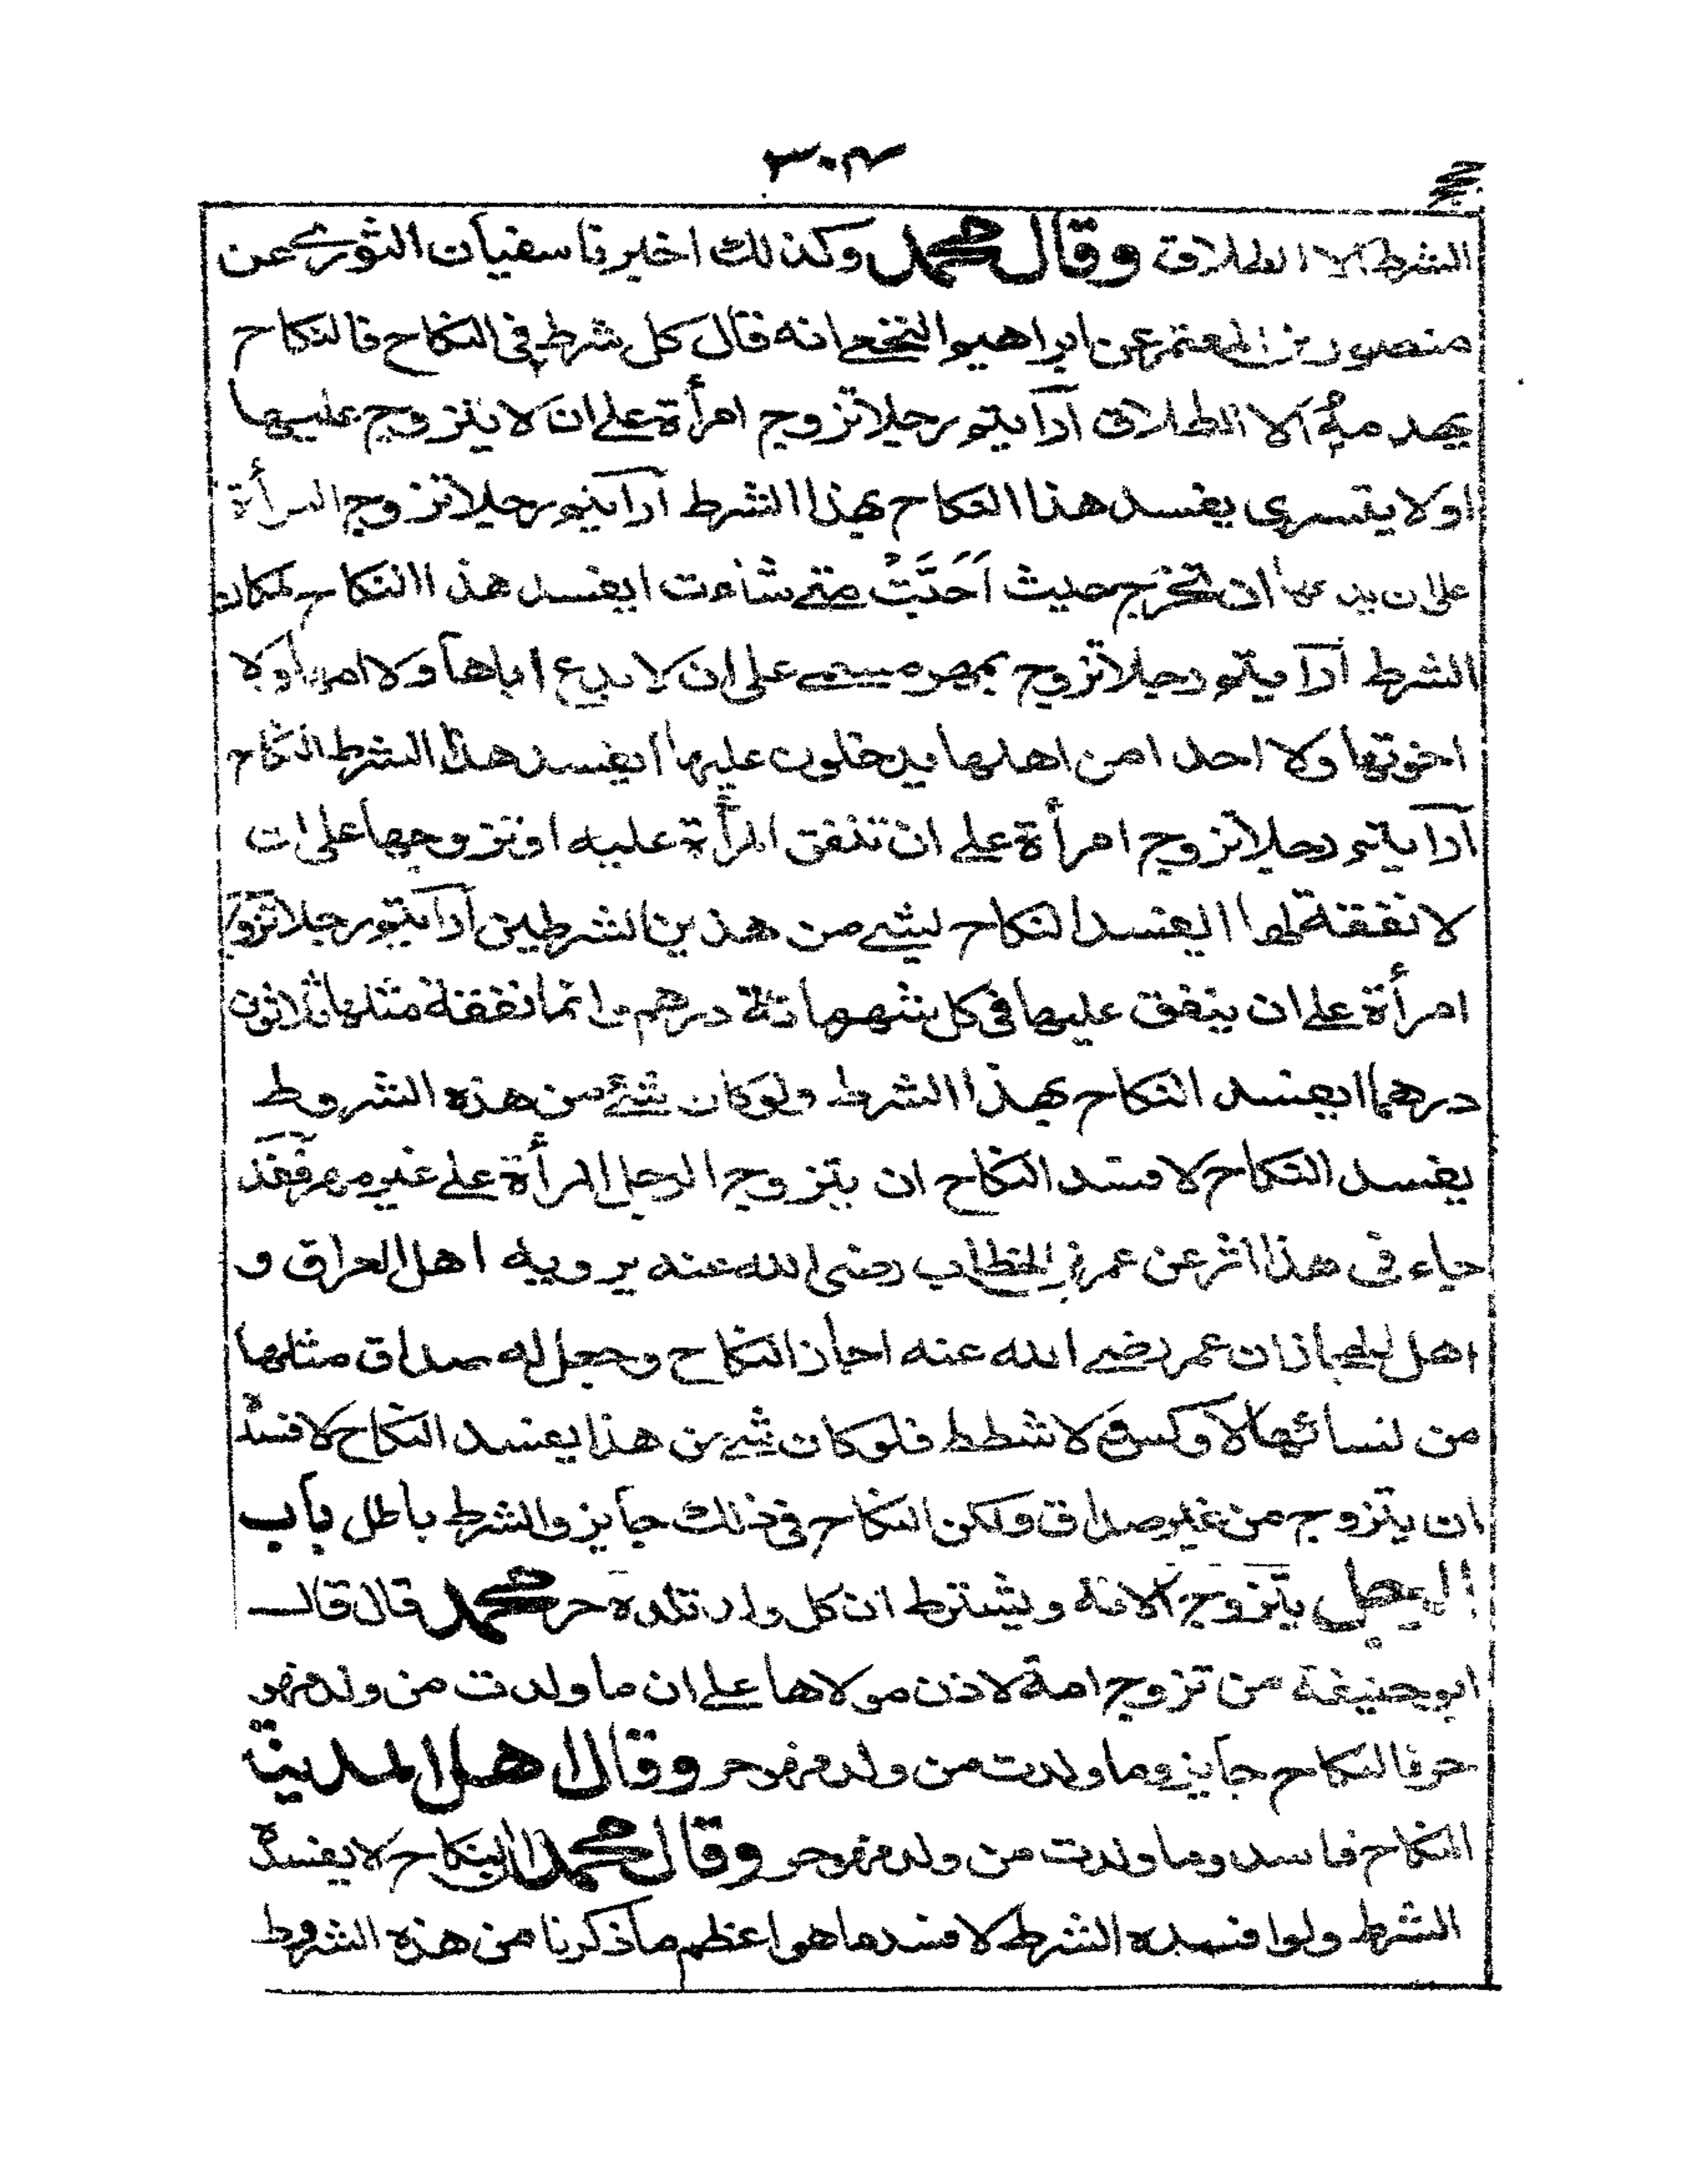 ٣٠٣
الشرط الا الطلاق وقال محمد وكذلك اخبرنا سفيان الثوري عن
منصور بن المعتمر عن ابراهيم النخعي انه قال كل شرط في النكاح فالنكاح
يهدمه الا الطلاق أرأيتم رجلا تزوج امرأة على ان لا يتزوج عليها
او لا يتسرى يفسد هذا النكاح بهذا الشرط أرأيتم رجلا تزوج المرأة
على ان يدعها ان تخرج حيث اَحَبَّتْ متى شاءت ايفسد هذا النكاح لمكان
الشرط أرأيتم رجلا تزوج بمهر مسمى على ان لا يدع اباها ولا امها ولا
اخوتها ولا احدا من اهلها يدخلون عليها ايفسد هذا الشرط النكاح
أرأيتم رجلا تزوج امرأة على ان تنفق المرأة عليه او تزوجها على ان
لا نفقة لها ايفسد النكاح لشي من هذين الشرطين أرأيتم رجلا تزوج
امرأة على ان ينفق عليها في كل شهر مائة درهم وانما نفقة مثلها ثلاثون
درهما ايفسد النكاح بهذا الشرط ولو كان شئ من هذه الشروط
يفسد النكاح لا فسد النكاح ان يتزوج الرجل المرأة على غير مهر فقد
جاء في هذا اثر عن عمر بن الخطاب رضى الله عنه يرويه اهل العراق و
اهل الحجاز ان عمر رضي الله عنه اجاز النكاح وجعل له صداق مثلها
من نسائها لا وكس ولا شطط فلو كان شي من هذا يفسد النكاح لا فسد
ان يتزوج من غير صداق ولكن النكاح في ذلك جايز والشرط باطل باب
الرجل يتزوج الامة ويشترط ان كل ولد تلده حر محمد قال قال
ابو حنيفة من تزوج امة لاذن مولاها على ان ما ولدت من ولد فهو
حر فالنكاح جايز وما ولدت من ولد فهو حر وقال اهل المدينة
النكاح فاسد وما ولدت من ولد فهو حر وقال محمد النكاح لا يفسده
الشرط ولو افسده الشرط لا فسد ما هو اعظم ماذكرنا من هذه الشروط